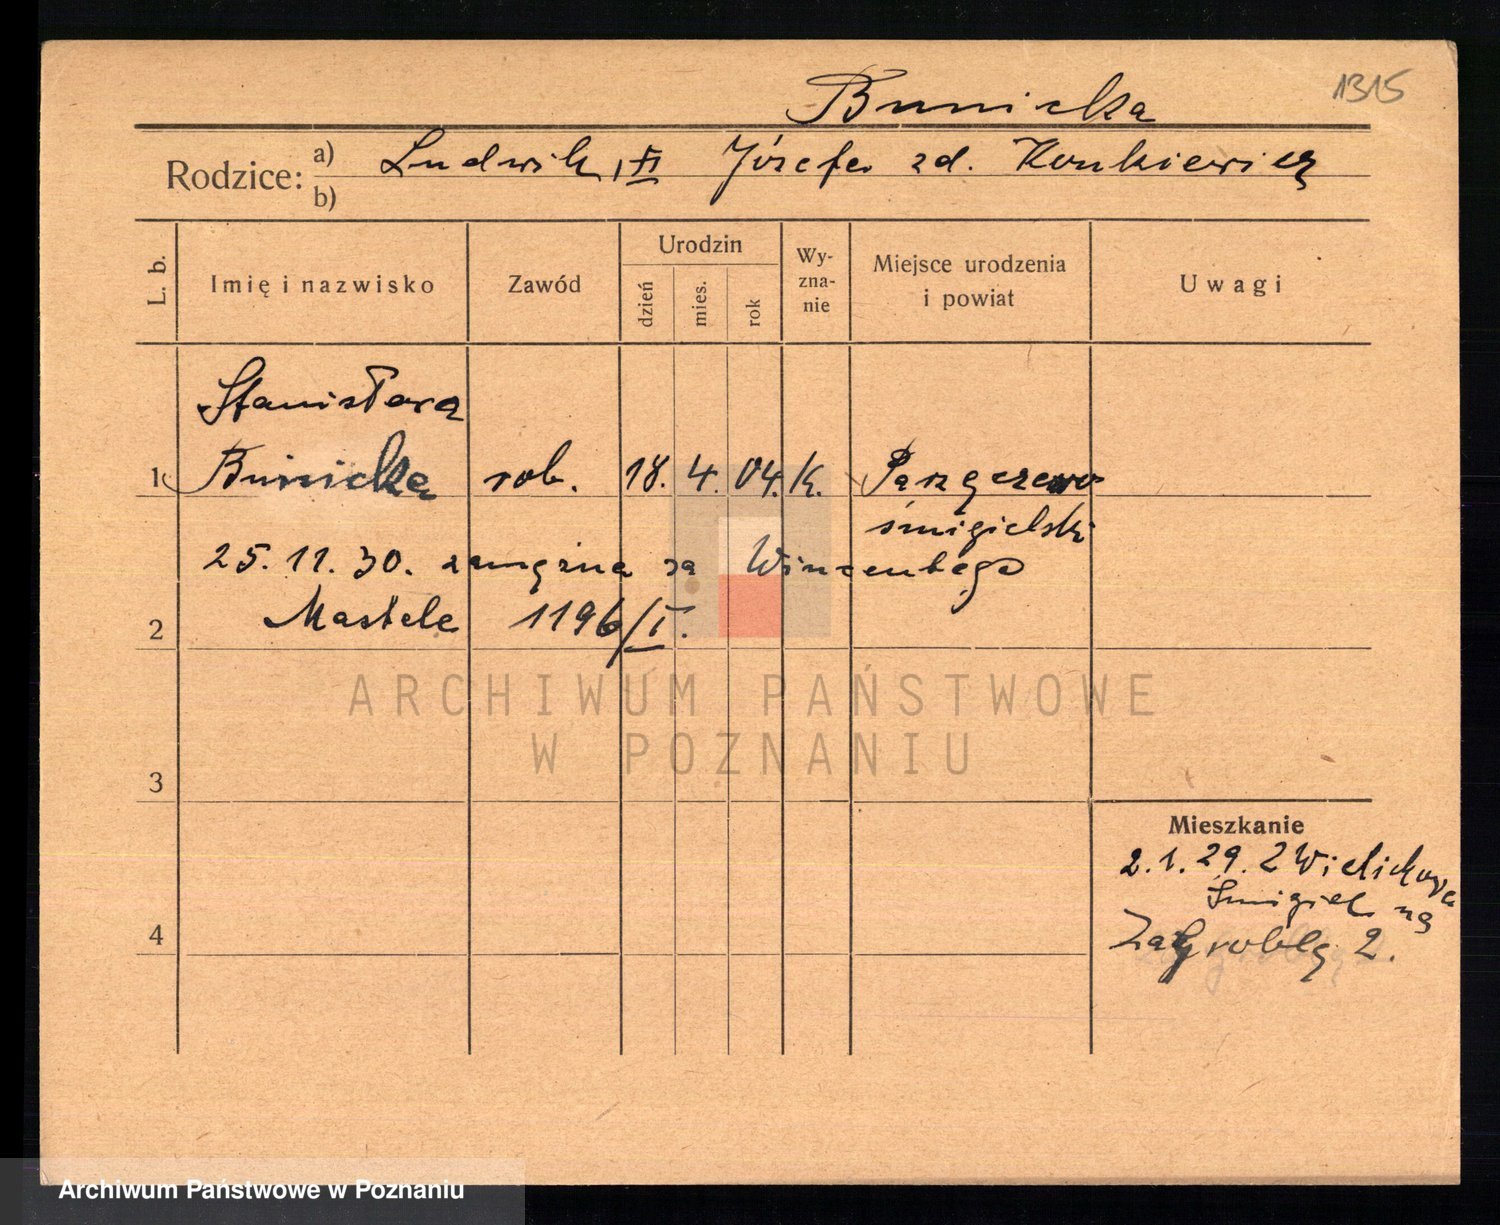 1315
Bunicka
Rodzice: a) Ludwik, Józefa zd. Konkiewicz
b)
L. b.
Imię i nazwisko
Zawód
Urodzin
dzień
mies.
rok
Wy-
zna-
nie
Miejsce urodzenia
i powiat
Uwagi
Stanisława
1 Bunicka rob. 18. 4. 04. K.
śmigielski
25. 11. 30. zamężna za Wincentego
2 Mastele 1196/I.
ARCHIWUM PAŃSTWOWE
W POZNANIU
3
Mieszkanie
2.1.29. Z Wielichowa
Śmigiel
4 2.
Archiwum Państwowe w Poznaniu